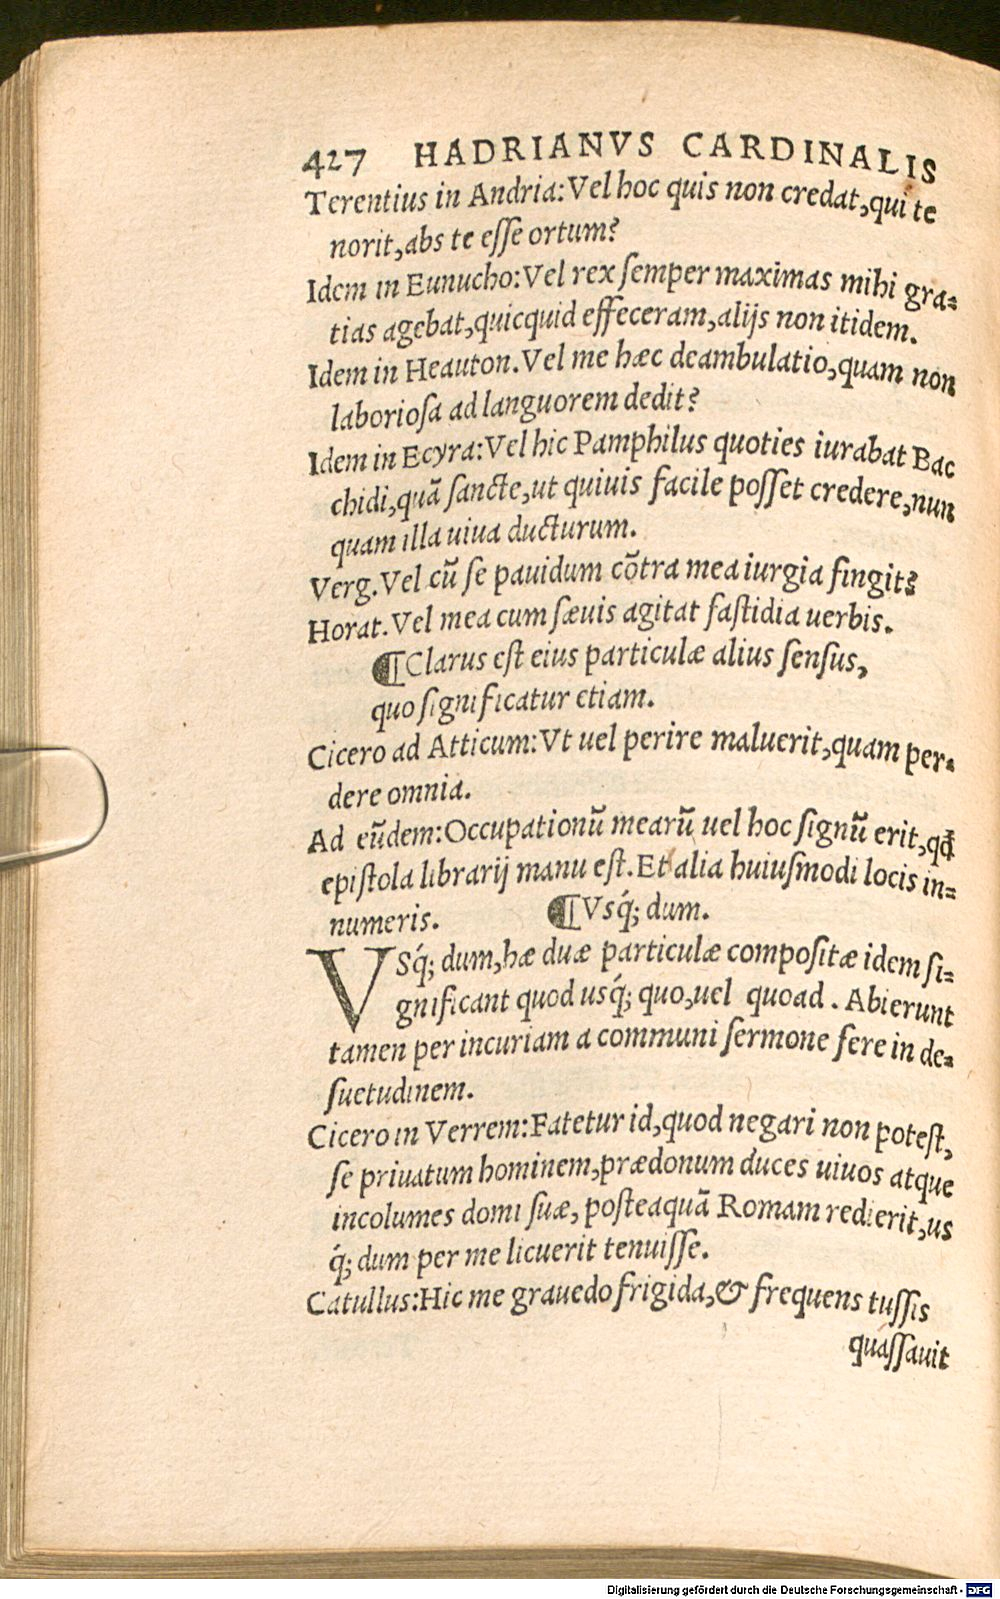 427 HADRIANVS CARDINALIS
Terentius in Andria: Vel hoc quis non credat, qui te
norit, abs te eſſe ortum?
Idem in Eunucho: Vel rex ſemper maximas mihi gra-
tias agebat, quicquid effeceram, alijs non itidem.
Idem in Heauton. Vel me hæc deambulatio, quam non
laborioſa ad languorem dedit?
Idem in Ecyra: Vel hic Pamphilus quoties iurabat Bac
chidi, quã ſancte, ut quiuis facile poſſet credere, nun
quam illa uiua ducturum.
Verg. Vel cũ ſe pauidum cõtra mea iurgia fingit?
Horat. Vel mea cum ſæuis agitat faſtidia uerbis.
¶Clarus eſt eius particulæ alius ſenſus,
quo ſignificatur etiam.
Cicero ad Atticum: Vt uel perire maluerit, quam per-
dere omnia.
Ad eũdem: Occupationũ mearũ uel hoc ſignũ erit, qđ
epiſtola librarij manu eſt. Et alia huiuſmodi locis in-
numeris. ¶Vsq́; dum.
VSq́; dum, hæ duæ particulæ compoſitæ idem ſi-
gnificant quod usq́; quo, uel quoad. Abierunt
tamen per incuriam a communi ſermone fere in de-
ſuetudinem.
Cicero in Verrem: Fatetur id, quod negari non poteſt,
ſe priuatum hominem, prædonum duces uiuos atque
incolumes domi ſuæ, poſteaquã Romam redierit, us
q́; dum per me licuerit tenuiſſe.
Catullus: Hic me grauedo frigida, & frequens tuſſis
quaſſauit
Digitalisierung gefördert durch die Deutsche Forschungsgemeinschaft - DFG